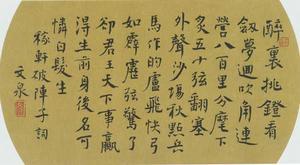 醉裏挑鐙看
劍夢迴吹角連
營八百里分麾下
炙五十弦翻塞
外聲沙場秋點兵
馬作的盧飛快弓
如霹靂弦驚了
卻君王天下事贏
得生前身後名可
憐白髮生
稼軒破陣子詞
文泉